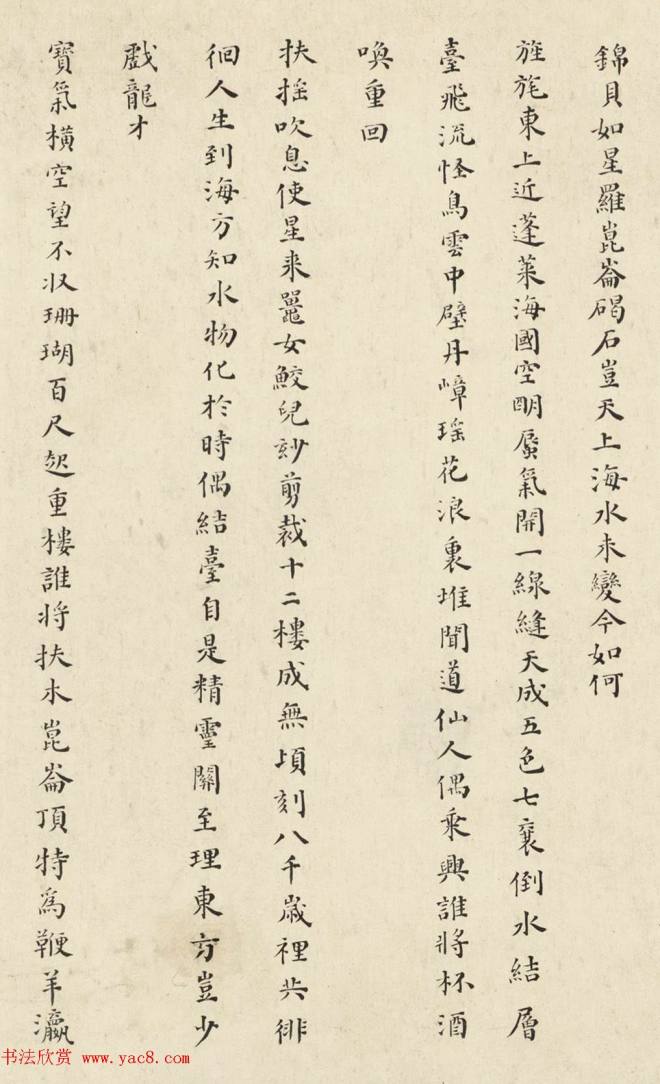 錦貝如星羅崑崙碣石豈天上海水未變今如何
旌旄東上近蓬萊海國空明蜃氣開一線縫天成五色七襄倒水結層
臺飛流怪鳥雲中壁丹嶂瑤花浪裏堆聞道仙人偶乘興誰將杯酒
喚重回
扶搖吹息使星来鼉女鮫兒玅剪裁十二樓成無頃刻八千歲裡共徘
徊人生到海方知水物化於時偶結臺自是精靈關至理東方豈少
戲龍才
寶氣橫空望不收珊瑚百尺起重樓誰將扶木崑崙頂特為鞭羊瀛
书法欣赏 www.yac8.com